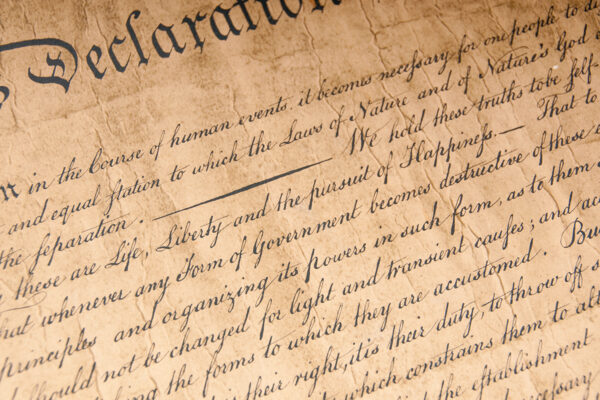 Declaration
in the Course of human events, it becomes necessary for one people to
and equal station to which the Laws of Nature and of Nature's God
the separation. We hold these truths to be self-
these are Life, Liberty and the pursuit of Happiness.— That to
that whenever any Form of Government becomes destructive of these
principles and organizing its powers in such form, as to them
should not be changed for light and transient causes; and
the forms to which they are accustomed. But
their right, it is their duty, to throw off
which constrains them to
the establishment
necessary